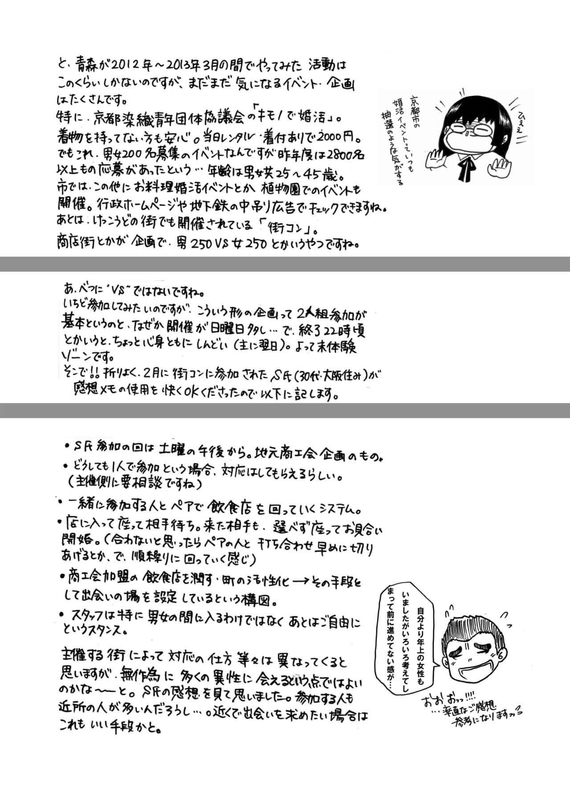 と、青森が2012年～2013年3月の間でやってみた 活動は
このくらいしかないのですが、まだまだ気になるイベント・企画
はたくさんです。
特に、京都染織青年団体協議会の「キモノで婚活」。
着物を持ってない方も安心。当日レンタル・着付ありで2000円。
でもこれ、男女200名募集のイベントなんですが昨年度は2800名
以上もの応募があったという…年齢は男女共25～45歳。
市では、この他にお料理婚活イベントとか、植物園でのイベントも
開催。行政ホームページや地下鉄の中吊り広告でチェックできますね。
あとは、けっこうどの街でも開催されている「街コン」。
商店街とかが企画で、男250VS女250とかいうやつですね。
ひえぇ
京都市の
婚活イベントっていつも
抽選のような気がする
あ、べつに"VS"ではないですね。
いちど参加してみたいのですが、こういう形の企画って2人組参加が
基本というのと、なぜか開催が日曜日多し…で、終了22時頃
とかいうと、ちょっと心身ともにしんどい(主に翌日)。よって未体験
ゾーンです。
そこで!!折りよく、2月に街コンに参加されたS氏(30代・大阪住み)が
感想メモの使用を快くOKくださったので以下に記します。
・S氏参加の回は土曜の午後から。地元商工会企画のもの。
・どうしても1人で参加という場合、対応はしてもらえるらしい。
(主催側に要相談ですね)
・一緒に参加する人とペアで飲食店を回っていくシステム。
・店に入って座って相手待ち。来た相手も、選べず座ってお見合い
開始。(合わないと思ったらペアの人と打ち合わせ早めに切り
あげるとか、で、順繰りに回っていく感じ)
・商工会加盟の飲食店を潤す・町の活性化→その手段と
して出会いの場を設定しているという構図。
・スタッフは特に男女の間に入るわけではなくあとはご自由に
というスタンス。
主催する街によって対応の仕方等々は異なってくると
思いますが、無作為に多くの異性に会えるという点ではよい
のかな～と。S氏の感想を見て思いました。参加する人も
近所の人が多いんだろうし…。近くで出会いを求めたい場合は
これもいい手段かと。
自分より年上の女性も
いましたがいろいろ考えてし
まって前に進めてない感が…
おおおっ!!!!
…率直なご感想
参考になりますっ